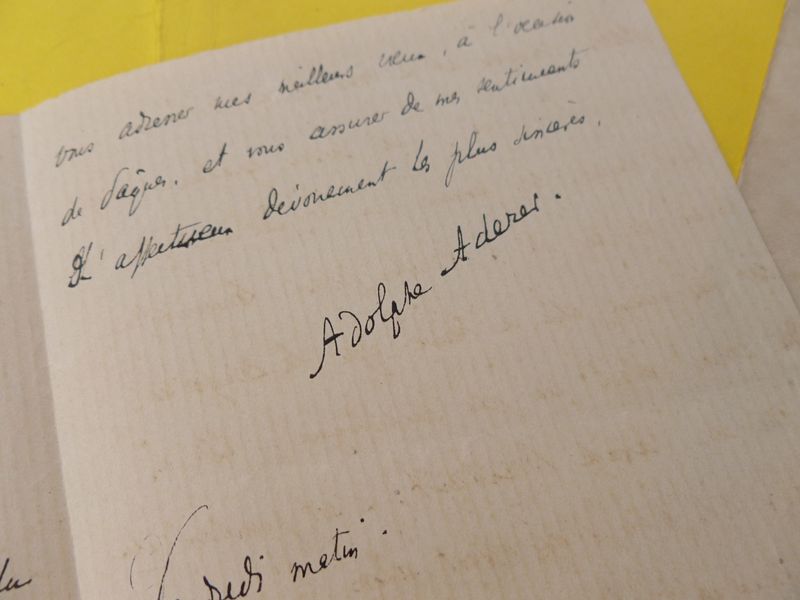 vous adresser mes meilleurs vœux, à l'occasion
de Pâques, et vous assurer de mes sentiments
d'affectueux dévouement les plus sincères.
Adolphe Aderer.
matin.